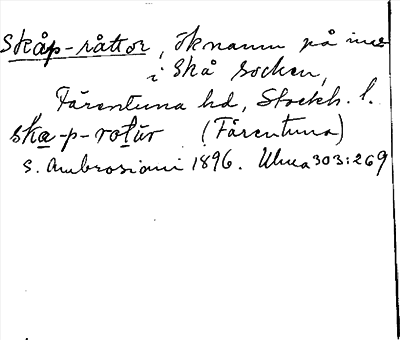 Skåp-råttor, öknamn på inv
i Skå socken,
Färentuna hd, Stockh. l.
ska-p-rotür (Färentuna)
S. Ambrosiani 1896. Ulma 303:269